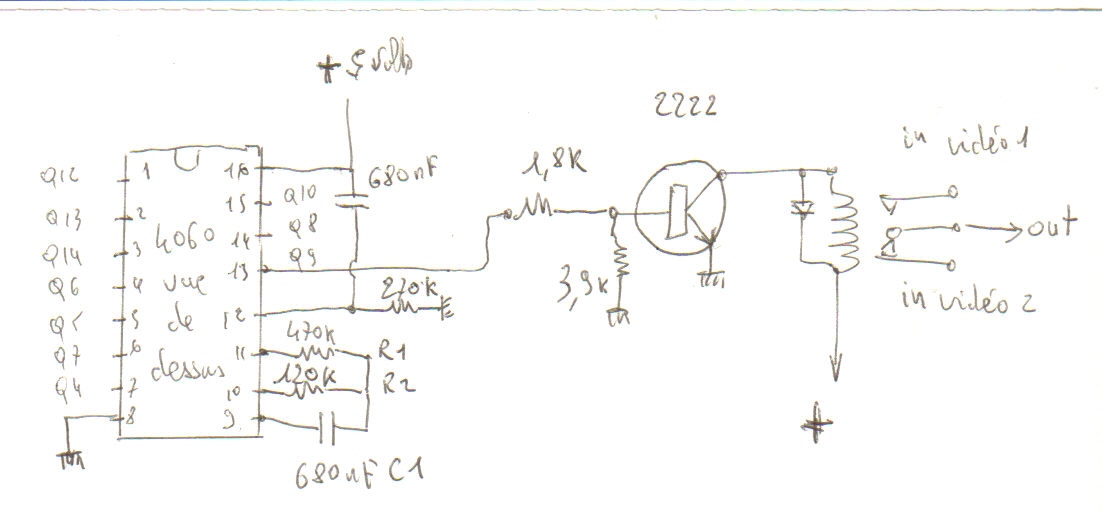 + 5 volts
2222
in vidéo 1
1,8K
680nF
Q12 1 16
Q13 2 15 Q10
4060 14 Q8
Q14 3 13 Q9
out
Q6 4 vue
270K
3,9K
Q5 5 de 12
in vidéo 2
470K
Q7 6 dessus 11 R1
120K
Q4 7 10 R2
8 9
+
680nF C1